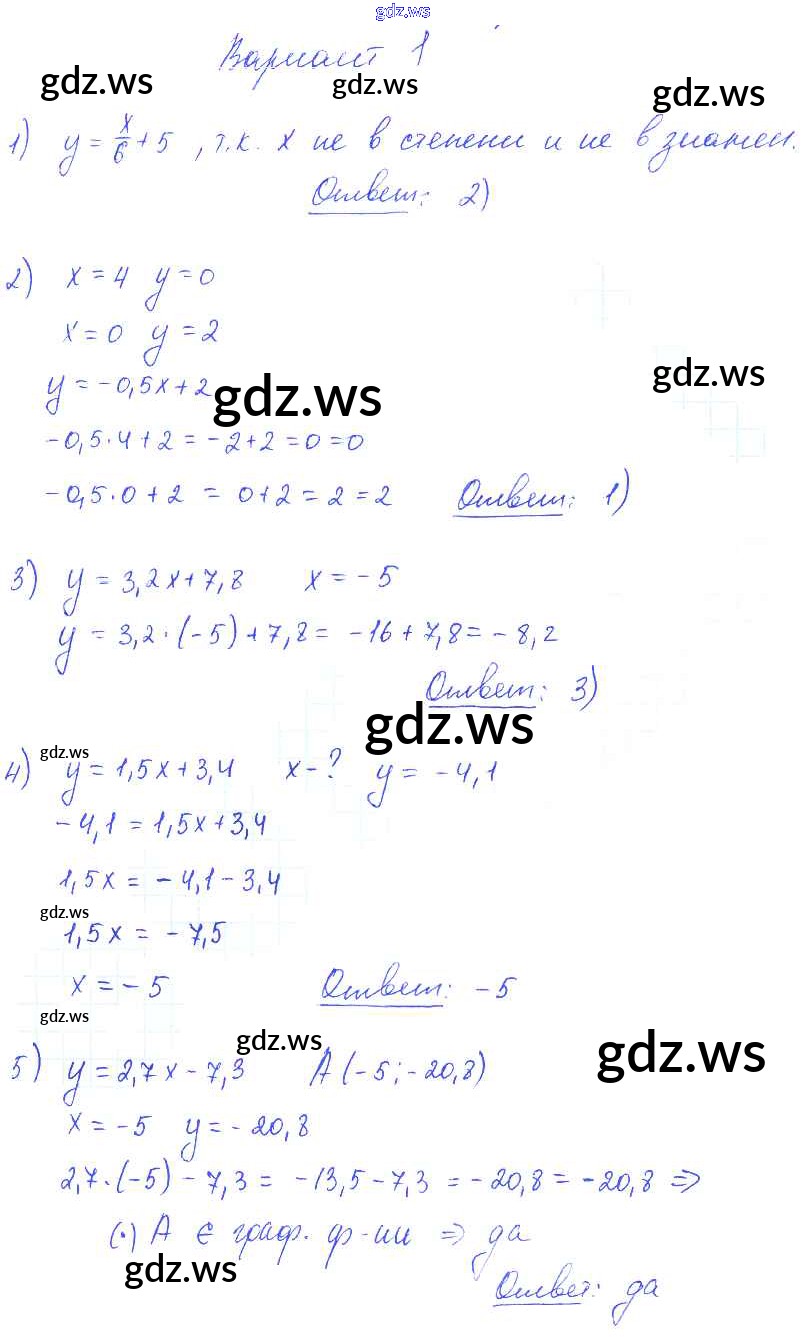 gdz.ws
Вариант 1
gdz.ws gdz.ws gdz.ws
1) y = x/6 + 5 , т.к. x не в степени и не в знамен.
Ответ: 2)
2) x = 4 y = 0
x = 0 y = 2
gdz.ws
y = -0,5x + 2
gdz.ws
-0,5·4 + 2 = -2 + 2 = 0 = 0
-0,5·0 + 2 = 0 + 2 = 2 = 2 Ответ: 1)
3) y = 3,2x + 7,8 x = -5
y = 3,2·(-5) + 7,8 = -16 + 7,8 = -8,2
Ответ: 3)
gdz.ws
gdz.ws
4) y = 1,5x + 3,4 x - ? y = -4,1
-4,1 = 1,5x + 3,4
1,5x = -4,1 - 3,4
gdz.ws
1,5x = -7,5
x = -5 Ответ: -5
gdz.ws
gdz.ws gdz.ws
5) y = 2,7x - 7,3 A (-5; -20,8)
x = -5 y = -20,8
2,7·(-5) - 7,3 = -13,5 - 7,3 = -20,8 = -20,8 ⇒
(·) A ∈ граф. ф-ии ⇒ да
gdz.ws
Ответ: да